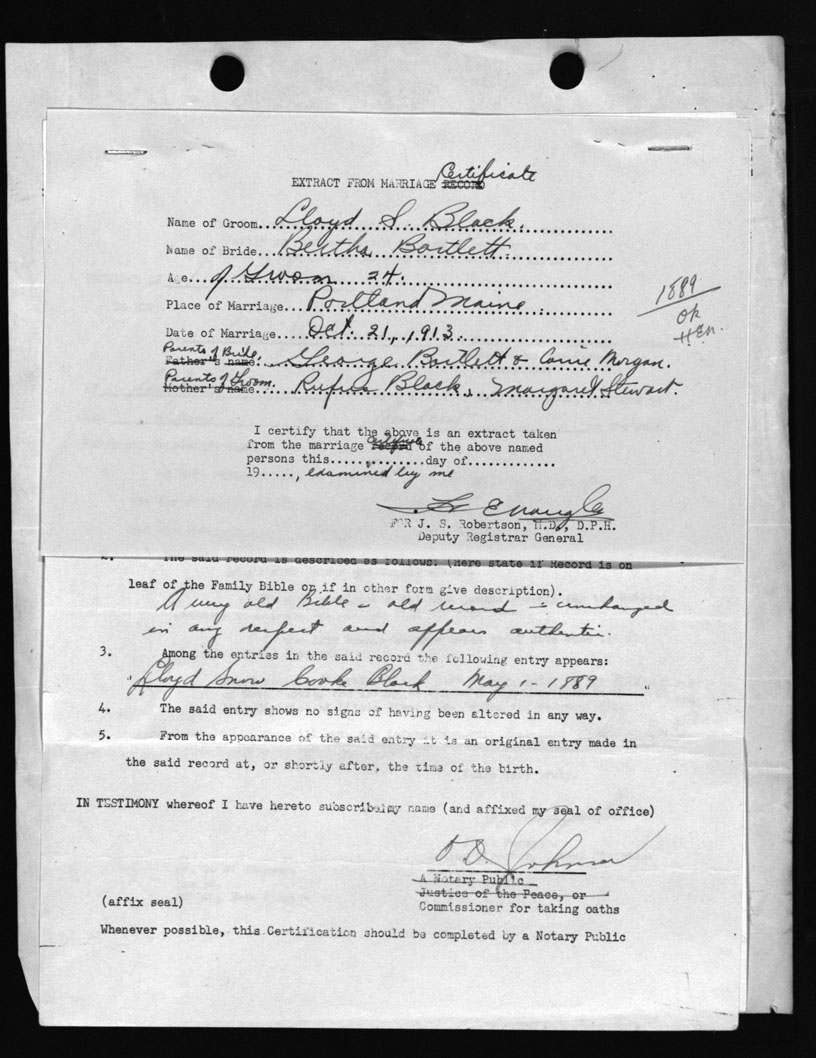 EXTRACT FROM MARRIAGE RECORD Certificate
Name of Groom..Lloyd S. Black.
Name of Bride...Bertha Bartlett.
Age...of Groom 24.
Place of Marriage...Portland Maine.
Date of Marriage....Oct. 21, 1913.
1889
ok
HEN.
Parents of Bride.
Father's name. George Bartlett & Annie Morgan.
Parents of Groom.
Mother's name... Rufus Black, Margaret Stewart.
I certify that the above is an extract taken
from the marriage record certificate of the above named
persons this..............day of.............
19....., examined by me
FOR J. S. Robertson, M.D., D.P.H.
Deputy Registrar General
2. The said record is described as follows: (Here state if Record is on
leaf of the Family Bible or if in other form give description).
A very old Bible - old record - unchanged
in any respect and appears authentic.
3. Among the entries in the said record the following entry appears:
"Lloyd Snow Cooke Black May 1 - 1889 "
4. The said entry shows no signs of having been altered in any way.
5. From the appearance of the said entry it is an original entry made in
the said record at, or shortly after, the time of the birth.
IN TESTIMONY whereof I have hereto subscribed my name (and affixed my seal of office)
A Notary Public
Justice of the Peace, or
(affix seal)
Commissioner for taking oaths
Whenever possible, this Certification should be completed by a Notary Public